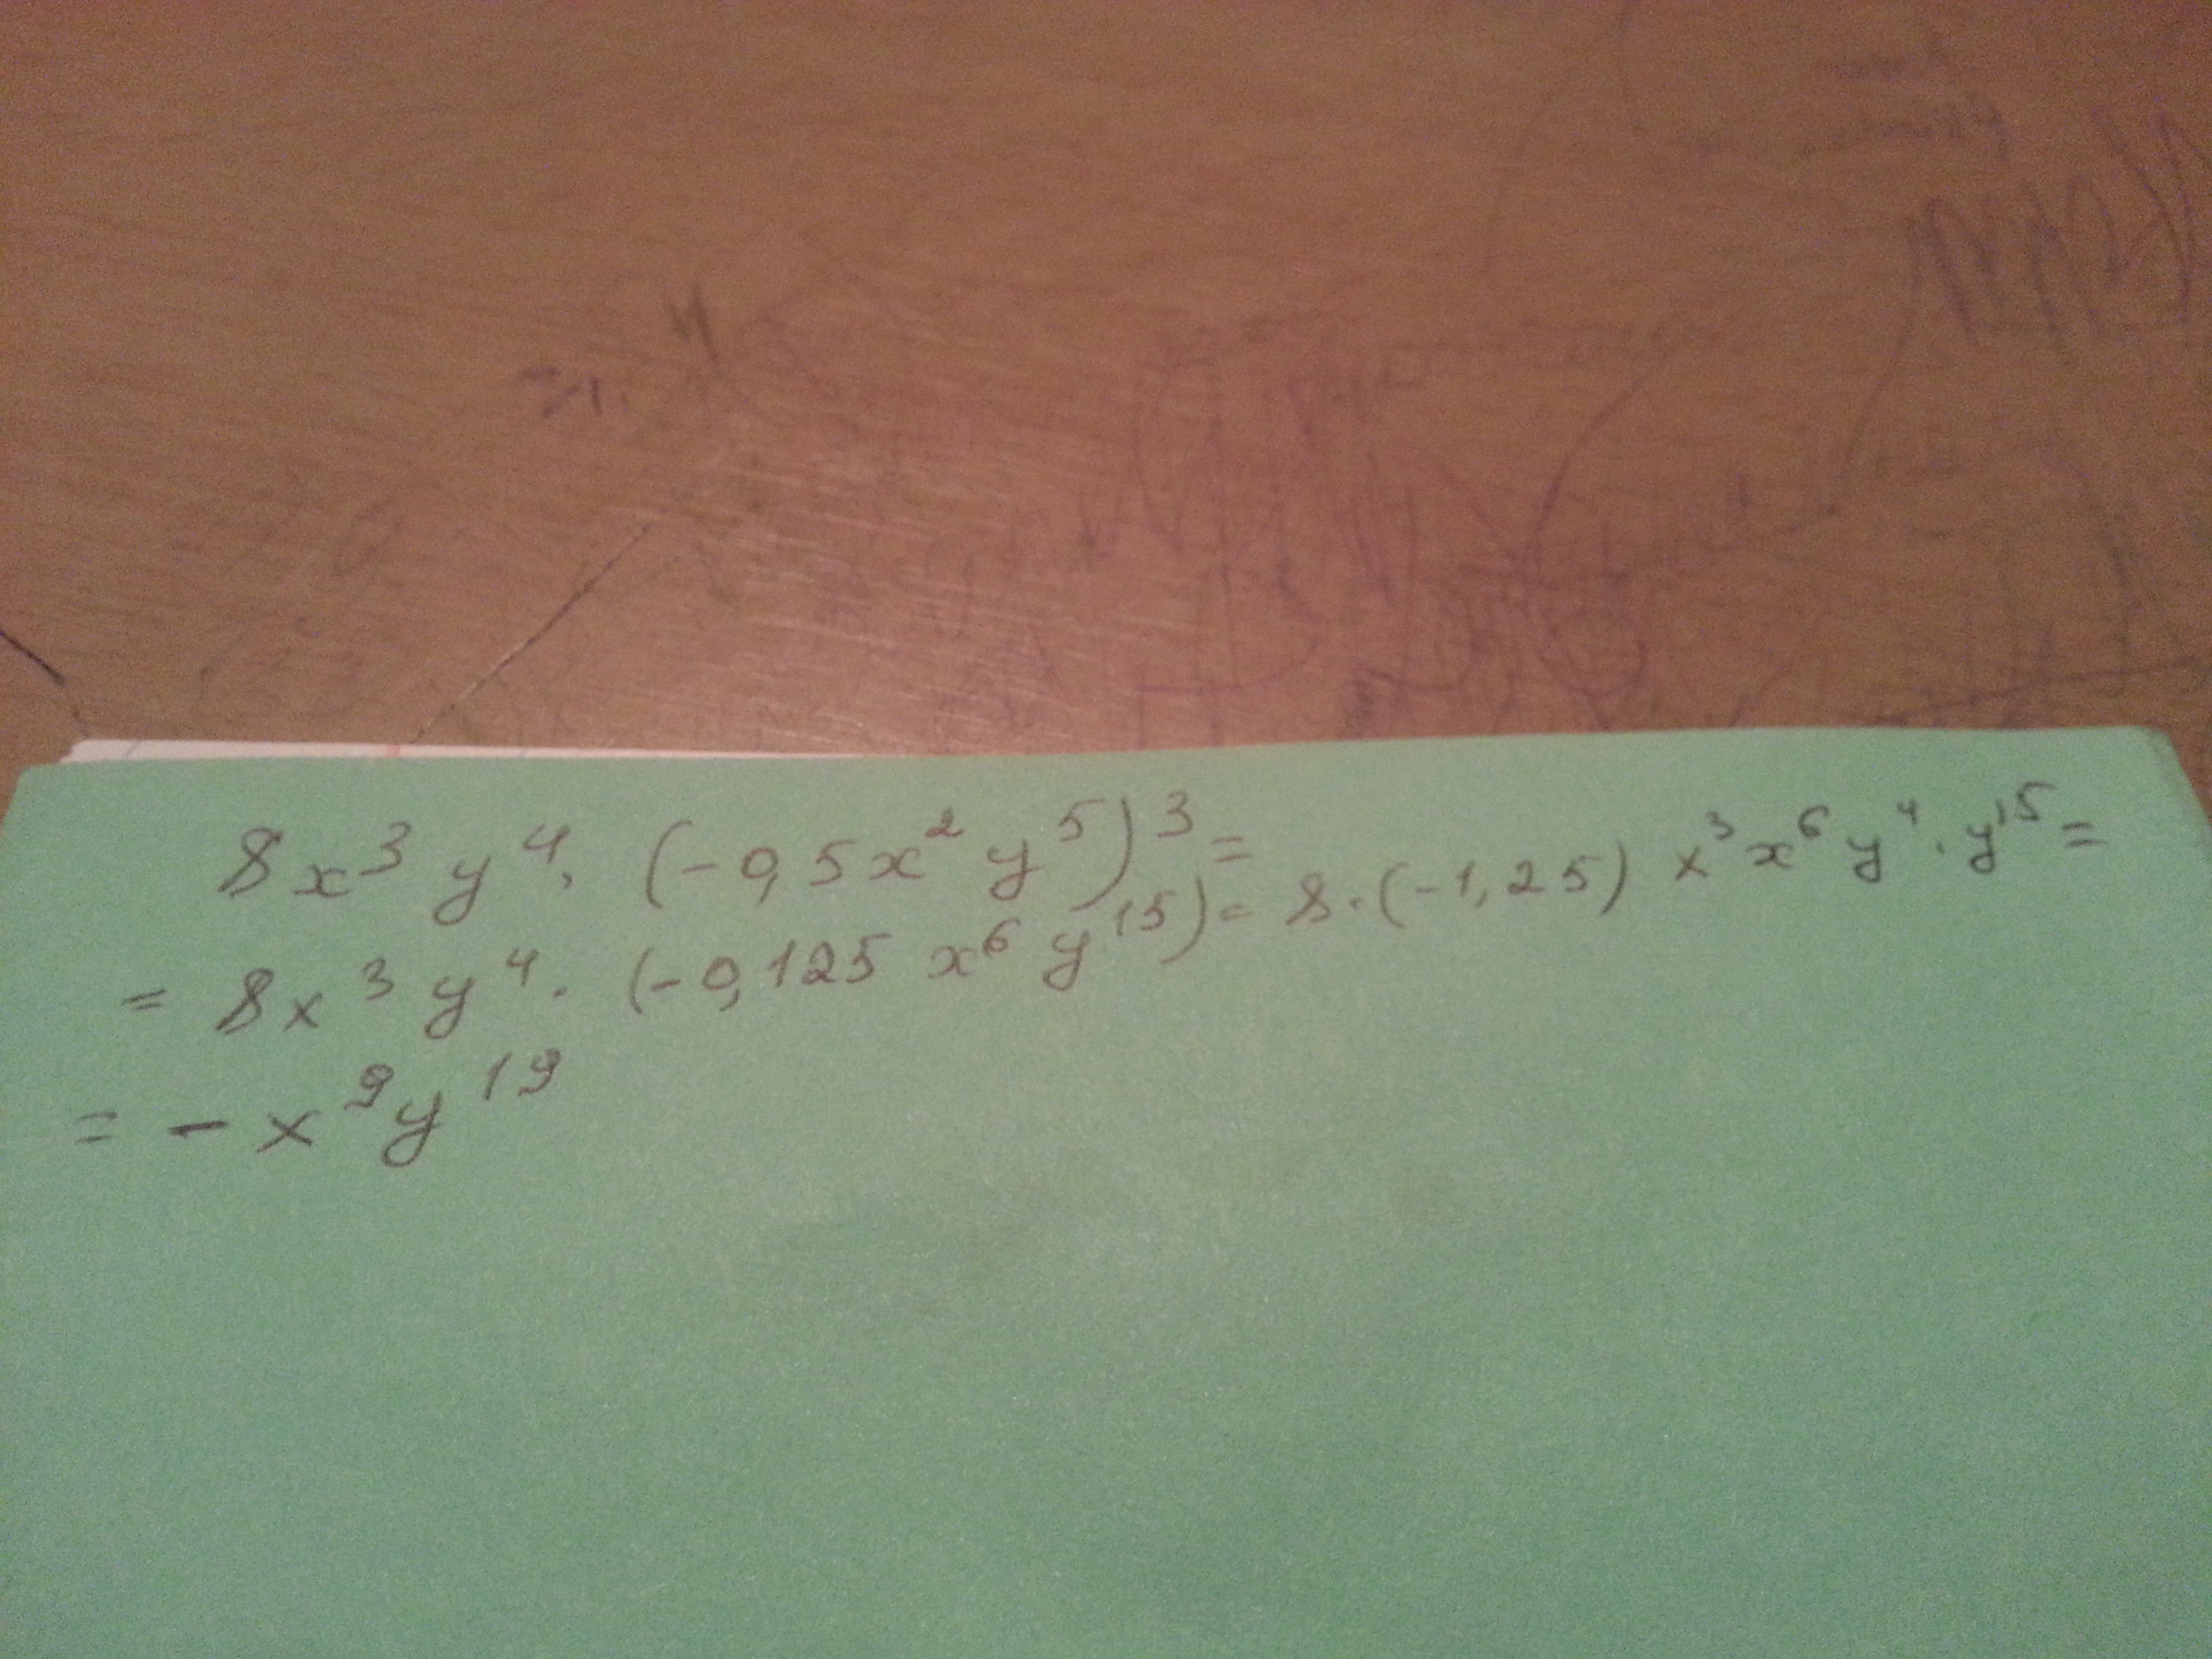 8x³y⁴·(-0,5x²y⁵)³=
=8x³y⁴·(-0,125x⁶y¹⁵)=8·(-1,25)x³x⁶y⁴·y¹⁵=
=-x⁹y¹⁹